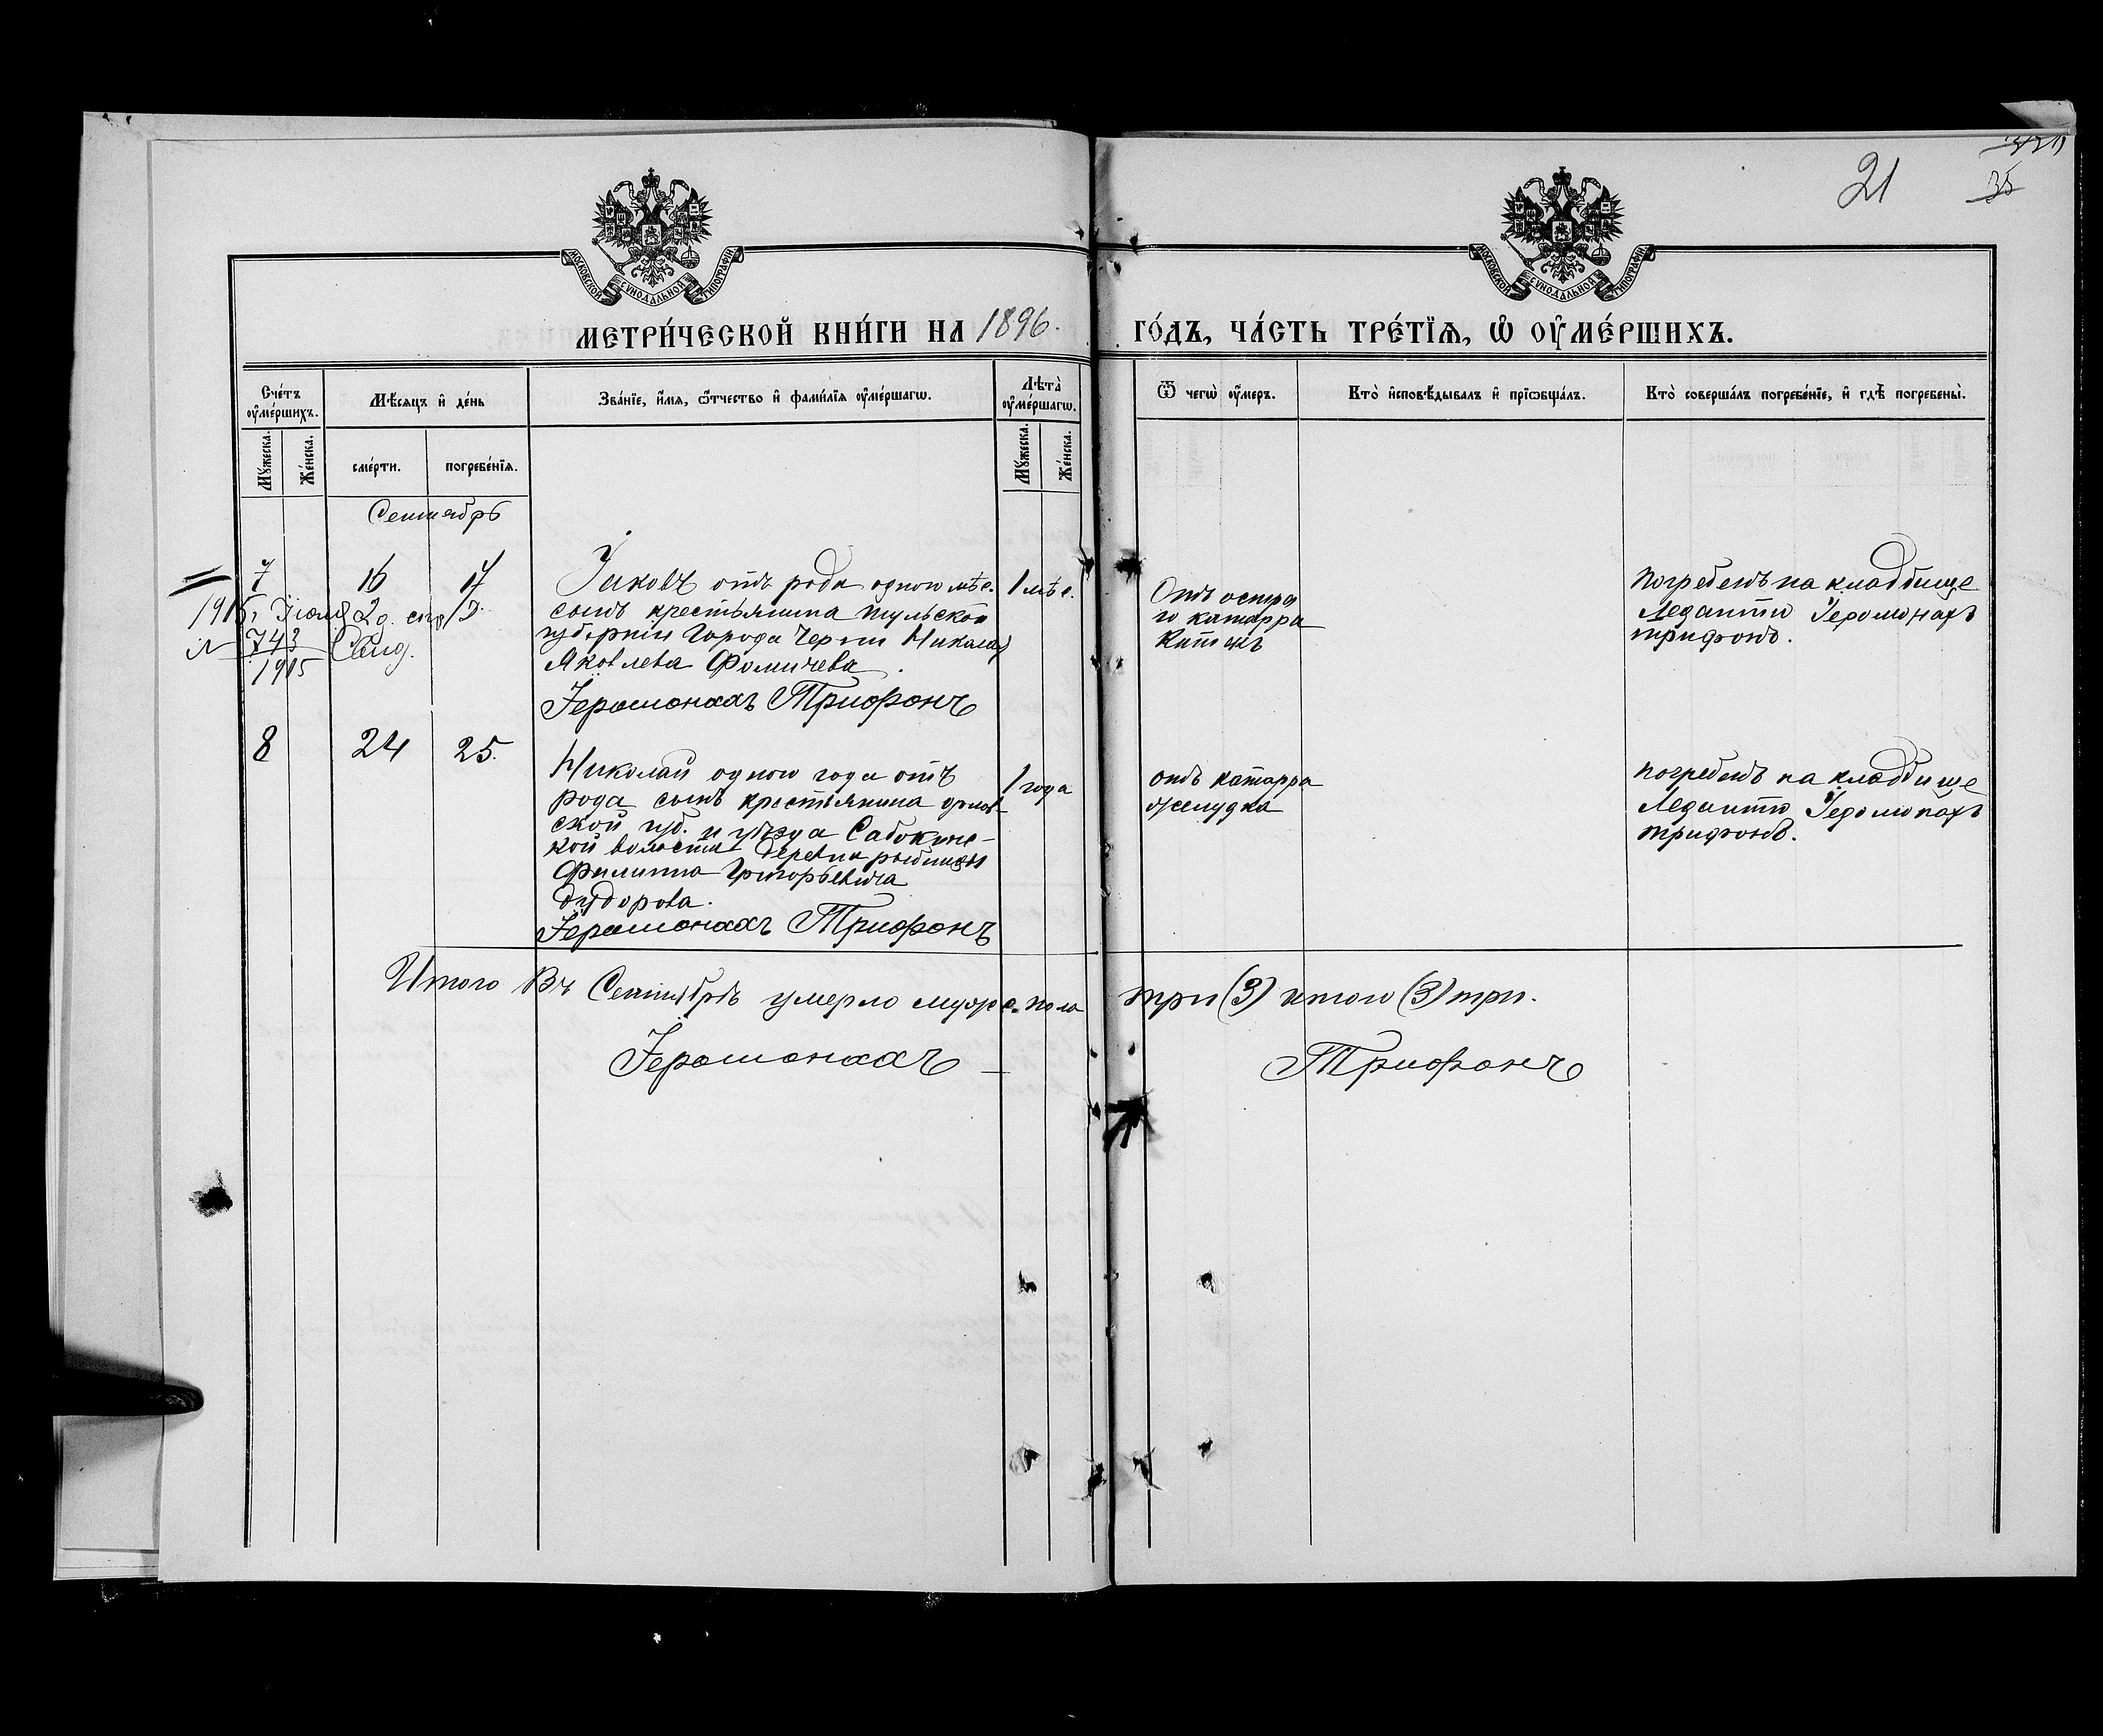 21
35
МОСКОВСКОЙ СУНОДАЛЬНОЙ ТИПОГРАФІИ
МОСКОВСКОЙ СУНОДАЛЬНОЙ ТИПОГРАФІИ
МЕТРИ́ЧЕСКОЙ КНИ́ГИ НА 1896. ГО́ДЪ, ЧА́СТЬ ТРЕ́ТЇѦ, Ѡ҆ ОУ҆МЕ́РШИХЪ.
Сче́тъ оу҆ме́ршихъ.
Мꙋ́жеска.
Же́нска.
Мѣ́сѧцъ и҆ де́нь
сме́рти.
погребе́нїѧ.
Зва́нїе, и҆́мѧ, ѻ҆́тчество и҆ фами́лїѧ оу҆ме́ршагѡ.
Лѣта̀ оу҆ме́ршагѡ.
Мꙋ́жеска.
Же́нска.
Ѿ чегѡ̀ оу҆́меръ.
Кто̀ и҆сповѣ́дывалъ и҆ прїѡбща́лъ.
Кто̀ соверша́лъ погребе́нїе, и҆ гдѣ̀ погребены̀.
Сентябрь
7 16 17
Іаковъ отъ рода одного мѣс.
сынъ крестьянина тульской
губерніи города Черни Николая
Яковлева Фомичева.
Іеромонахъ Трифонъ
1 мѣс.
Отъ остра
го катарра
Кишекъ
погребенъ на кладбище
Іеромонахъ
трифонъ.
1915 г. Іюля 2 д.
№ 743
1915
8 24 25.
Николай одного года отъ
рода сынъ крестьянина орлов
ской губ. и уѣзда
кой волости деревни
Филиппа Григорьевича
Дудорова.
Іеромонахъ Трифонъ
1 года
отъ катарра
желудка
погребенъ на кладбище
Іеромонахъ
трифонъ.
Итого Въ Сентябрѣ умерло мужес. пола три (3) итого (3) три.
Іеромонахъ Трифонъ